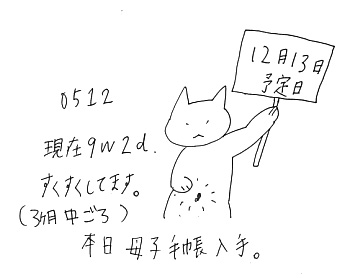 12月13日
予定日
0512
現在9w2d.
すくすくしてます。
(3ヶ月中ごろ)
本日 母子手帳入手。